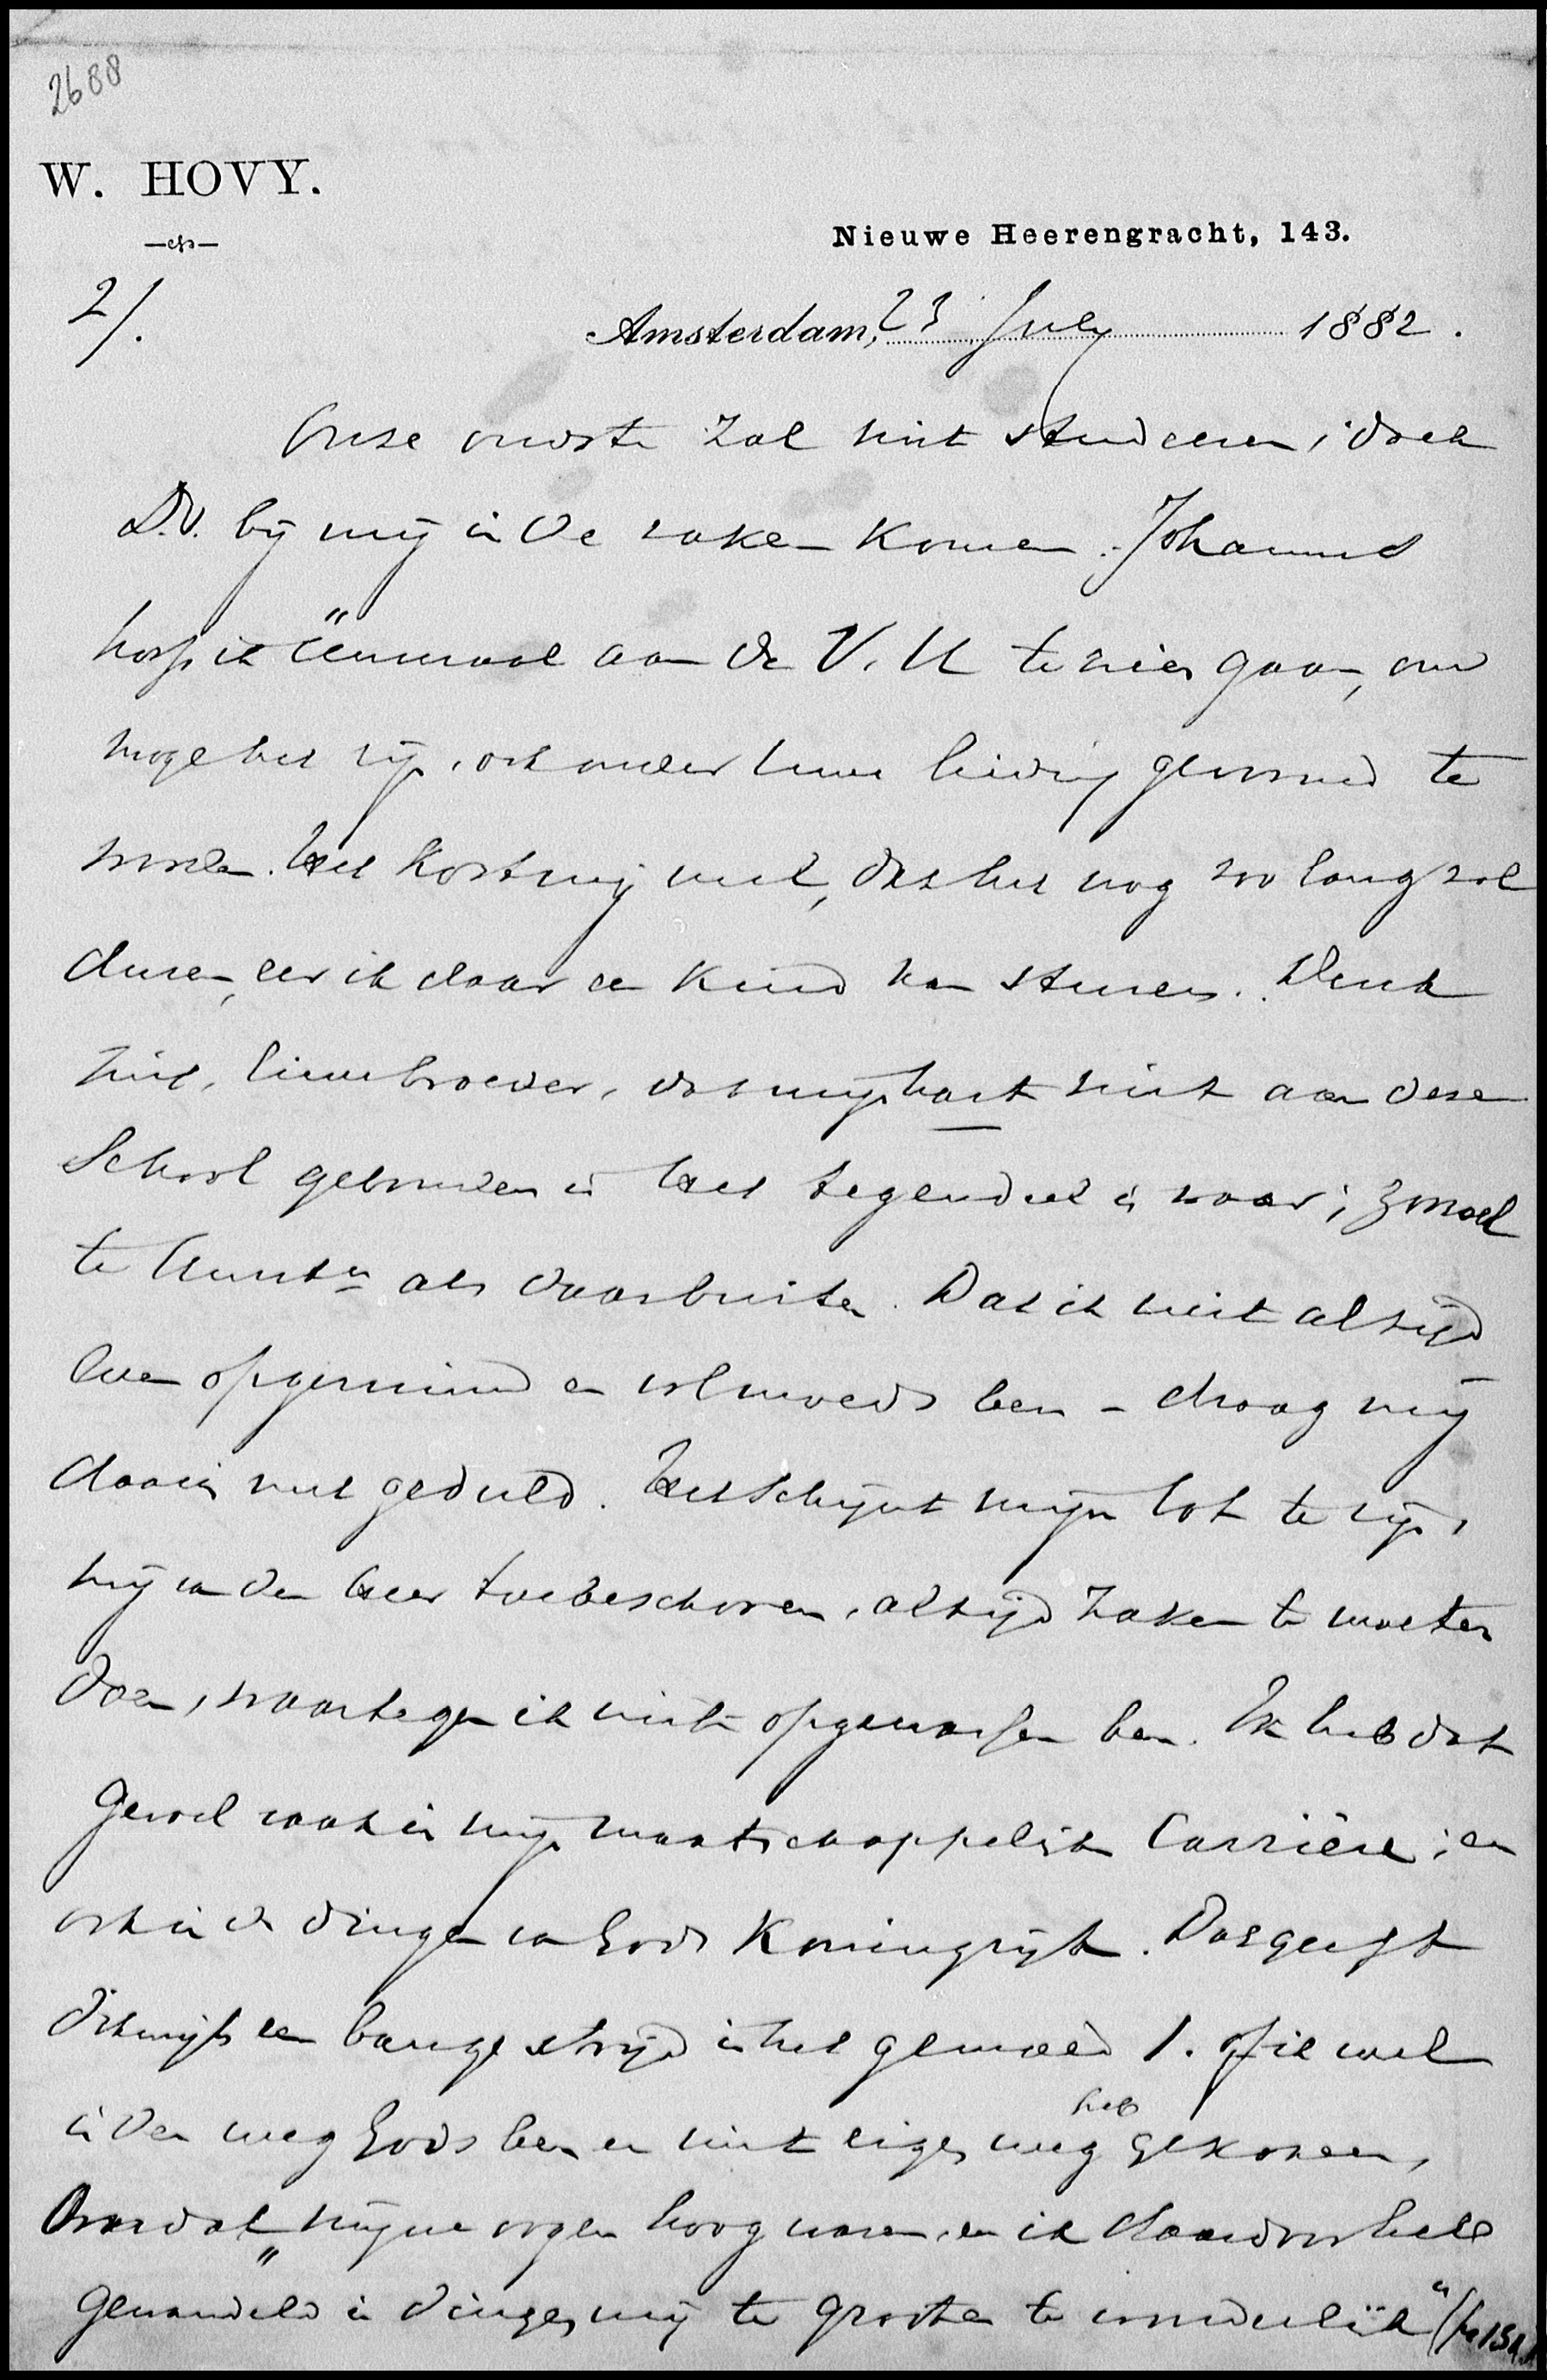 2688
W. HOVY.
Nieuwe Heerengracht, 143.
2/.
Amsterdam, 23 July 1882.
Onze oudste zal niet studeeren; doch
D.V. bij mij in de zaken komen. Johannes
hoop ik éénmaal aan de V. U te zien gaan, om
moge het zijn, ook onder uwe leiding gevormd te
worden. Het kost mij veel, dat het nog zoo lang zal
duren, eer ik daar een kind kan sturen. Denk
niet, lieve broeder, dat mijn hart niet aan deze
School gebonden is Het tegendeel is waar; zoowel
te Utrecht als daarbuiten. Dat ik niet altijd
even opgeruimd en vol moeds ben - draag mij
daarin met geduld. Het schijnt mijn lot te zijn,
mij van den Heer toebeschoren, altijd zaken te moeten
doen, waartegen ik niet opgewassen ben. Ik heb dat
gevoel vaak in mijn maatschappelijke Carrière; en
ook in de dingen van Gods Koningrijk. Dat geeft
dikwijls een bange strijd in het gemoed 1. of ik wel
in den weg Gods ben en niet eigen weg heb gekozen,
Omdat "mijne oogen hoog waren, en ik daardoor heb
gewandeld in dingen mij te groot en te wonderlijk" (ps 131